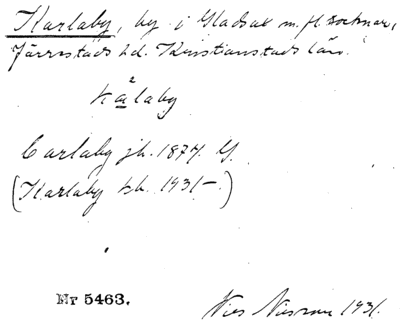 Karlaby, by i Gladsax m. fl. socknar,
Järrestads hd. Kristianstads län.
kạ²laby
Carlaby jb. 1877. G.
(Karlaby tb. 1931–)
Nr 5463.
1931.